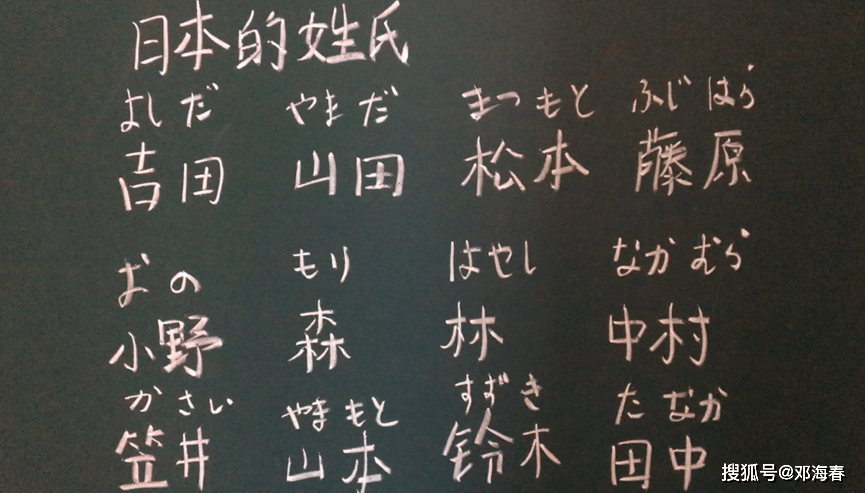 日本的姓氏
よしだ やまだ まつもと ふじはら
吉田 山田 松本 藤原
おの もり はやし なかむら
小野 森 林 中村
かさい やまもと すずき たなか
笠井 山本 鈴木 田中
搜狐号@邓海春